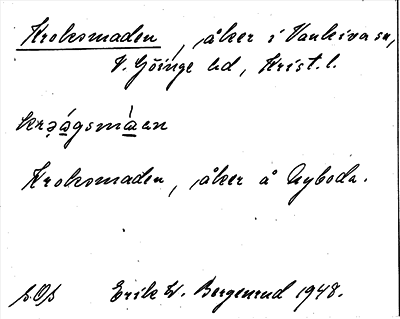 Kroksmaden, åker i Vankiva sn,
V. Göinge hd, Krist. l.
kråågsmàen
Kroksmaden, åker å Nyboda.
Erik W. Bergenrud 1948.